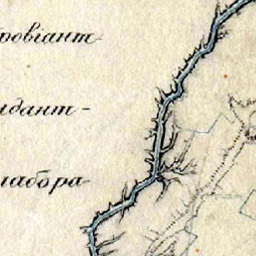 ровіант
идант-
лабора